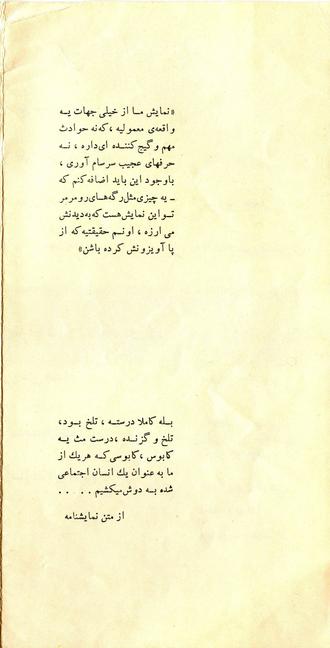 «نمایش مـا از خیلی جهات یـه
واقعه‌ی معمولیه ، که نه حوادث
مهم و گیج کننـده ای داره ، نـه
حرفهای عجیب سرسام آوری ،
باوجود این باید اضافه کنم که
ـ یه چیزی مثل رگه هـای رو مرمر
تـو این نمایش هست که به دیدنش
می ارزه ، اونـم حقیقتیه که از
پا آویزونش کرده باشن»
بـله کاملا درستـه ، تلخ بـود،
تلخ و گزنـده ، درست مث یـه
کابوس ، کابوسی کـه هر یك از
ما به عنوان یك انسان اجتماعی
شده بـه دوش میکشیم . . . .
از متن نمایشنامه